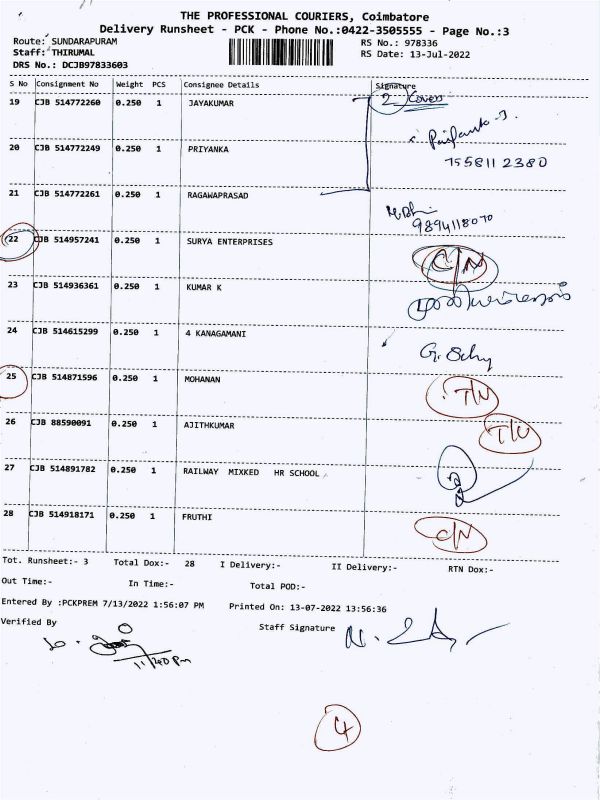 THE PROFESSIONAL COURIERS, Coimbatore
Delivery Runsheet - PCK - Phone No.:0422-3505555 - Page No.:3
Route: SUNDARAPURAM RS No.: 978336
Staff: THIRUMAL RS Date: 13-Jul-2022
DRS No.: DCJB97833603
S No Consignment No Weight PCS Consignee Details Signature
19 CJB 514772260 0.250 1 JAYAKUMAR 2 Covers
20 CJB 514772249 0.250 1 PRIYANKA
7558112380
21 CJB 514772261 0.250 1 RAGAWAPRASAD
9894118070
22 CJB 514957241 0.250 1 SURYA ENTERPRISES C/N
23 CJB 514936361 0.250 1 KUMAR K
24 CJB 514615299 0.250 1 4 KANAGAMANI
25 CJB 514871596 0.250 1 MOHANAN T/N
26 CJB 88590091 0.250 1 AJITHKUMAR T/N
27 CJB 514891782 0.250 1 RAILWAY MIXKED HR SCHOOL
28 CJB 514918171 0.250 1 FRUTHI C/N
Tot. Runsheet:- 3 Total Dox:- 28 I Delivery:- II Delivery:- RTN Dox:-
Out Time:- In Time:- Total POD:-
Entered By :PCKPREM 7/13/2022 1:56:07 PM Printed On: 13-07-2022 13:56:36
Verified By Staff Signature
11/40 Pm
4